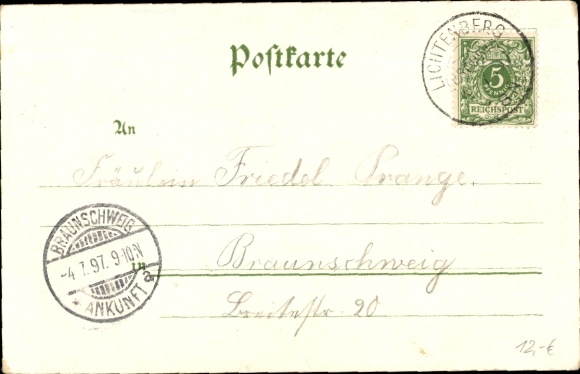 Postkarte
LICHTENBERG
5
PFENNIG
REICHSPOST
An
Fräulein Friedel Prange.
BRAUNSCHWEIG
-4.7.97. 9-10.N
* ANKUNFT a
in
Braunschweig
Breitestr. 20
12,-€